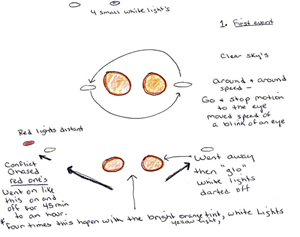 4 small white light's
1. First event
Clear sky's
around + around
speed –
Go + stop motion
to the eye
moved speed of
a blink of an eye
Red lights distant
Went away
then "glo"
white lights
darted off
Conflict
red one's
Went on like
this on and
off for 45 min
to an hour.
*Four times this hapen with the bright orang tint, white Lights
yellow light,